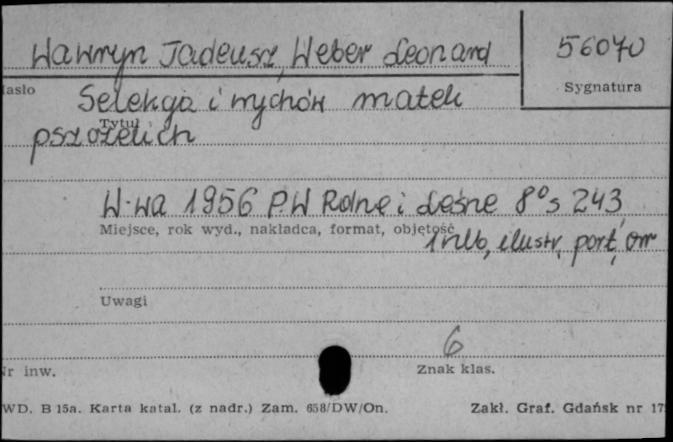 Wawryn Tadeusz, Weber Leonard
56070
asło
Sygnatura
Selekcja i wychów matek
Tytuł
pszczelich
W-wa 1956 P.W Rolne i Leśne 8° s 243,
Miejsce, rok wyd., nakładca, format, objętość
1 nlb, ilustr, port,
Uwagi
6
Nr inw.
Znak klas.
WD. B 15a. Karta katal. (z nadr.) Zam. 658/DW/On.
Zakł. Graf. Gdańsk nr 17